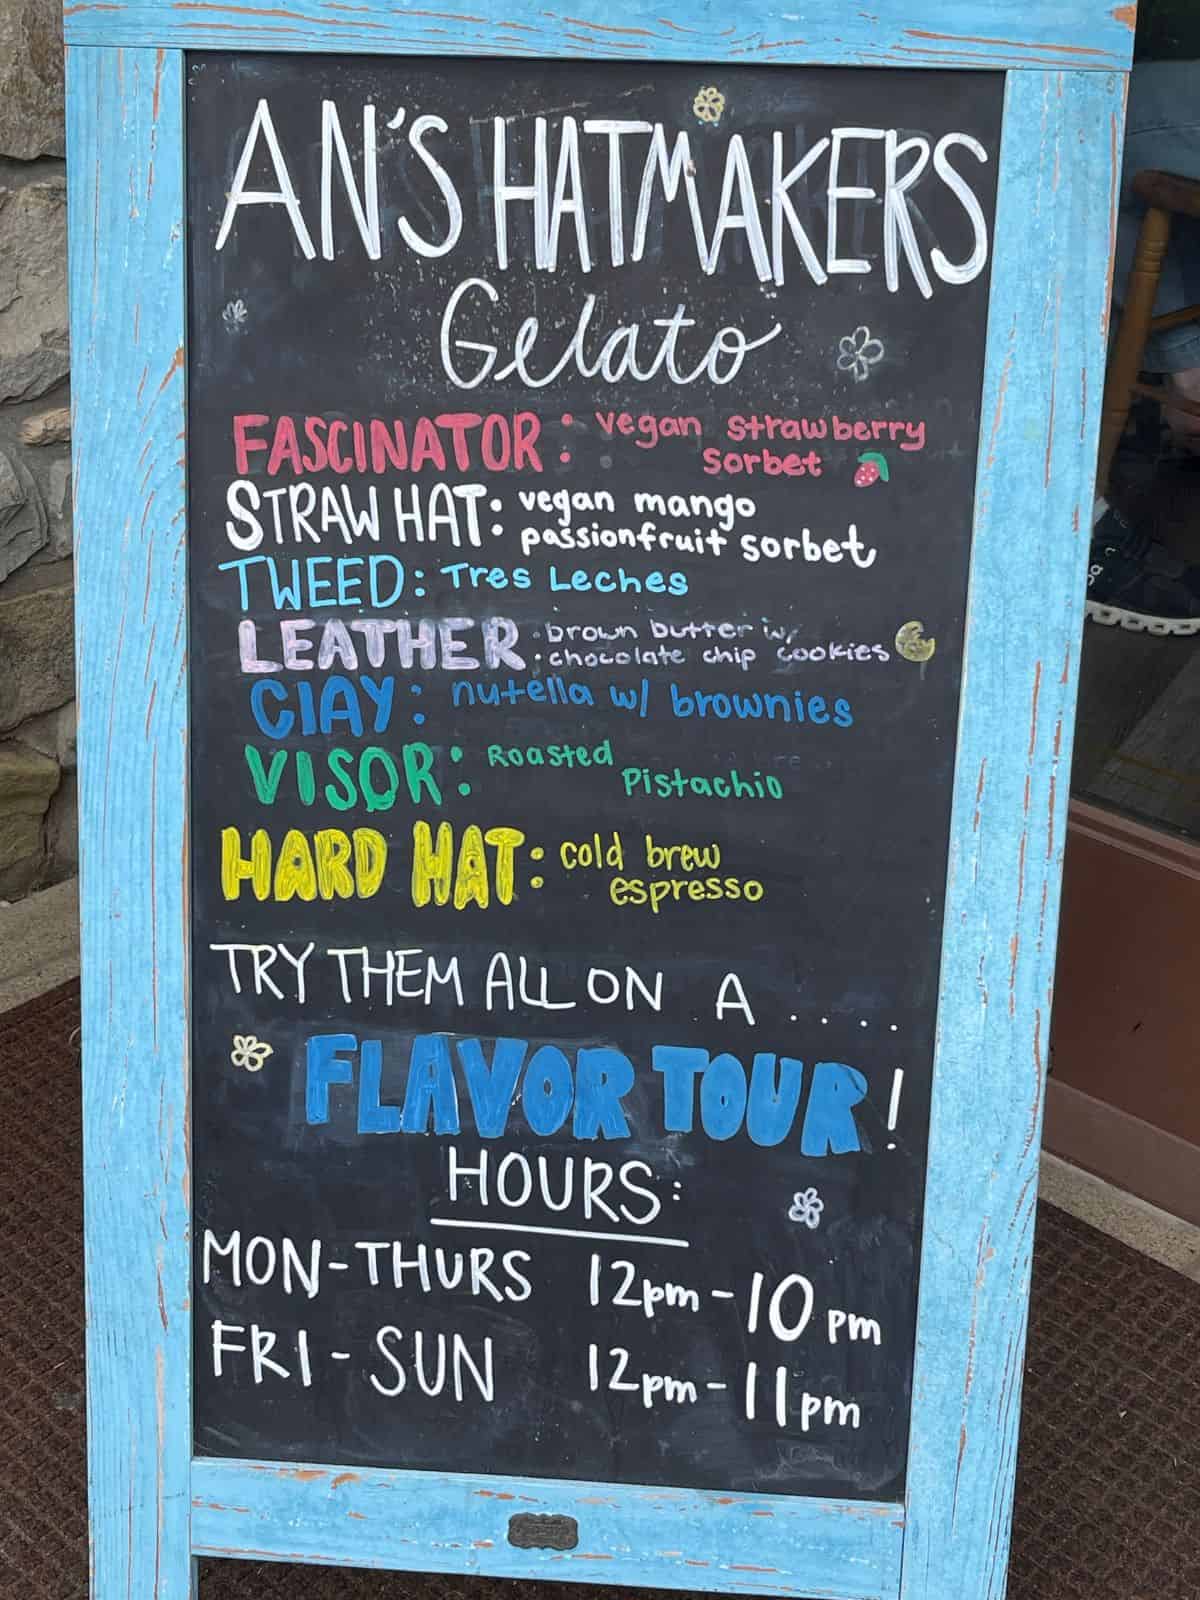 AN'S HATMAKERS
Gelato
FASCINATOR: vegan strawberry
sorbet
STRAW HAT: vegan mango
passionfruit sorbet
TWEED: Tres Leches
LEATHER: brown butter w/
chocolate chip cookies
ClAY: nutella w/ brownies
VISOR: Roasted
Pistachio
HARD HAT: cold brew
espresso
TRY THEM ALL ON A ....
FLAVOR TOUR!
HOURS:
MON-THURS 12pm-10pm
FRI-SUN 12pm-11pm